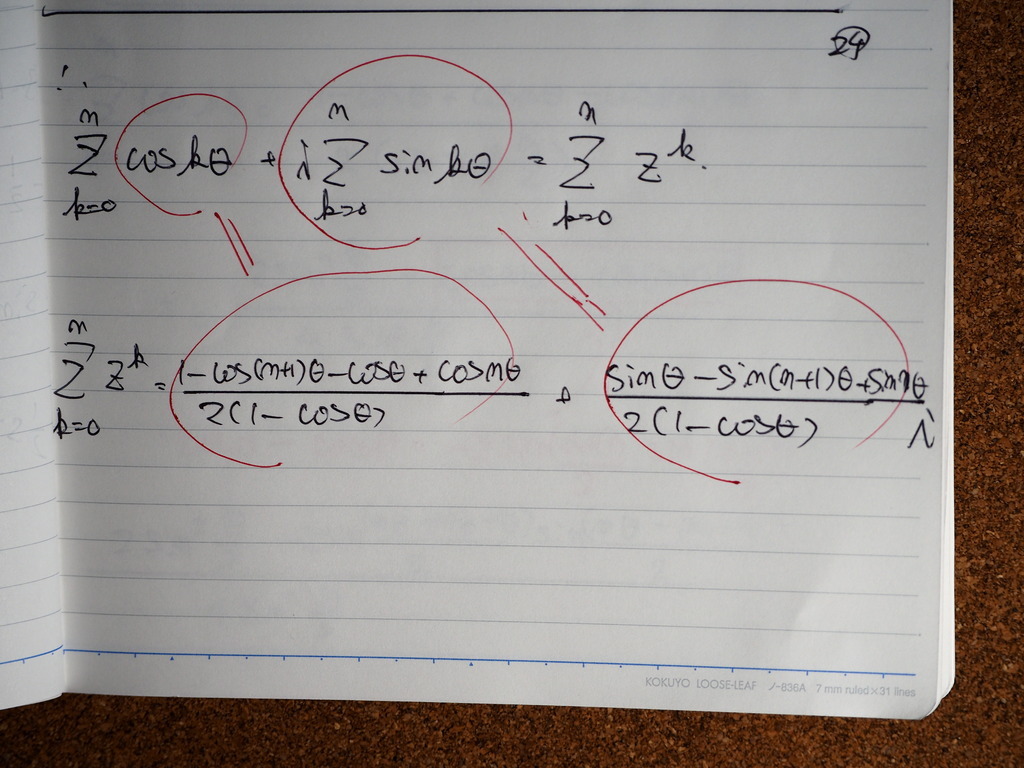 24
∴
∑_{k=0}^{n} cos kθ + i ∑_{k=0}^{n} sin kθ = ∑_{k=0}^{n} z^k.
∑_{k=0}^{n} z^k = (1 - cos(n+1)θ - cosθ + cos nθ) / (2(1 - cosθ)) + (sinθ - sin(n+1)θ + sin nθ) / (2(1 - cosθ)) i
KOKUYO LOOSE-LEAF ノ-836A 7 mm ruled×31 lines